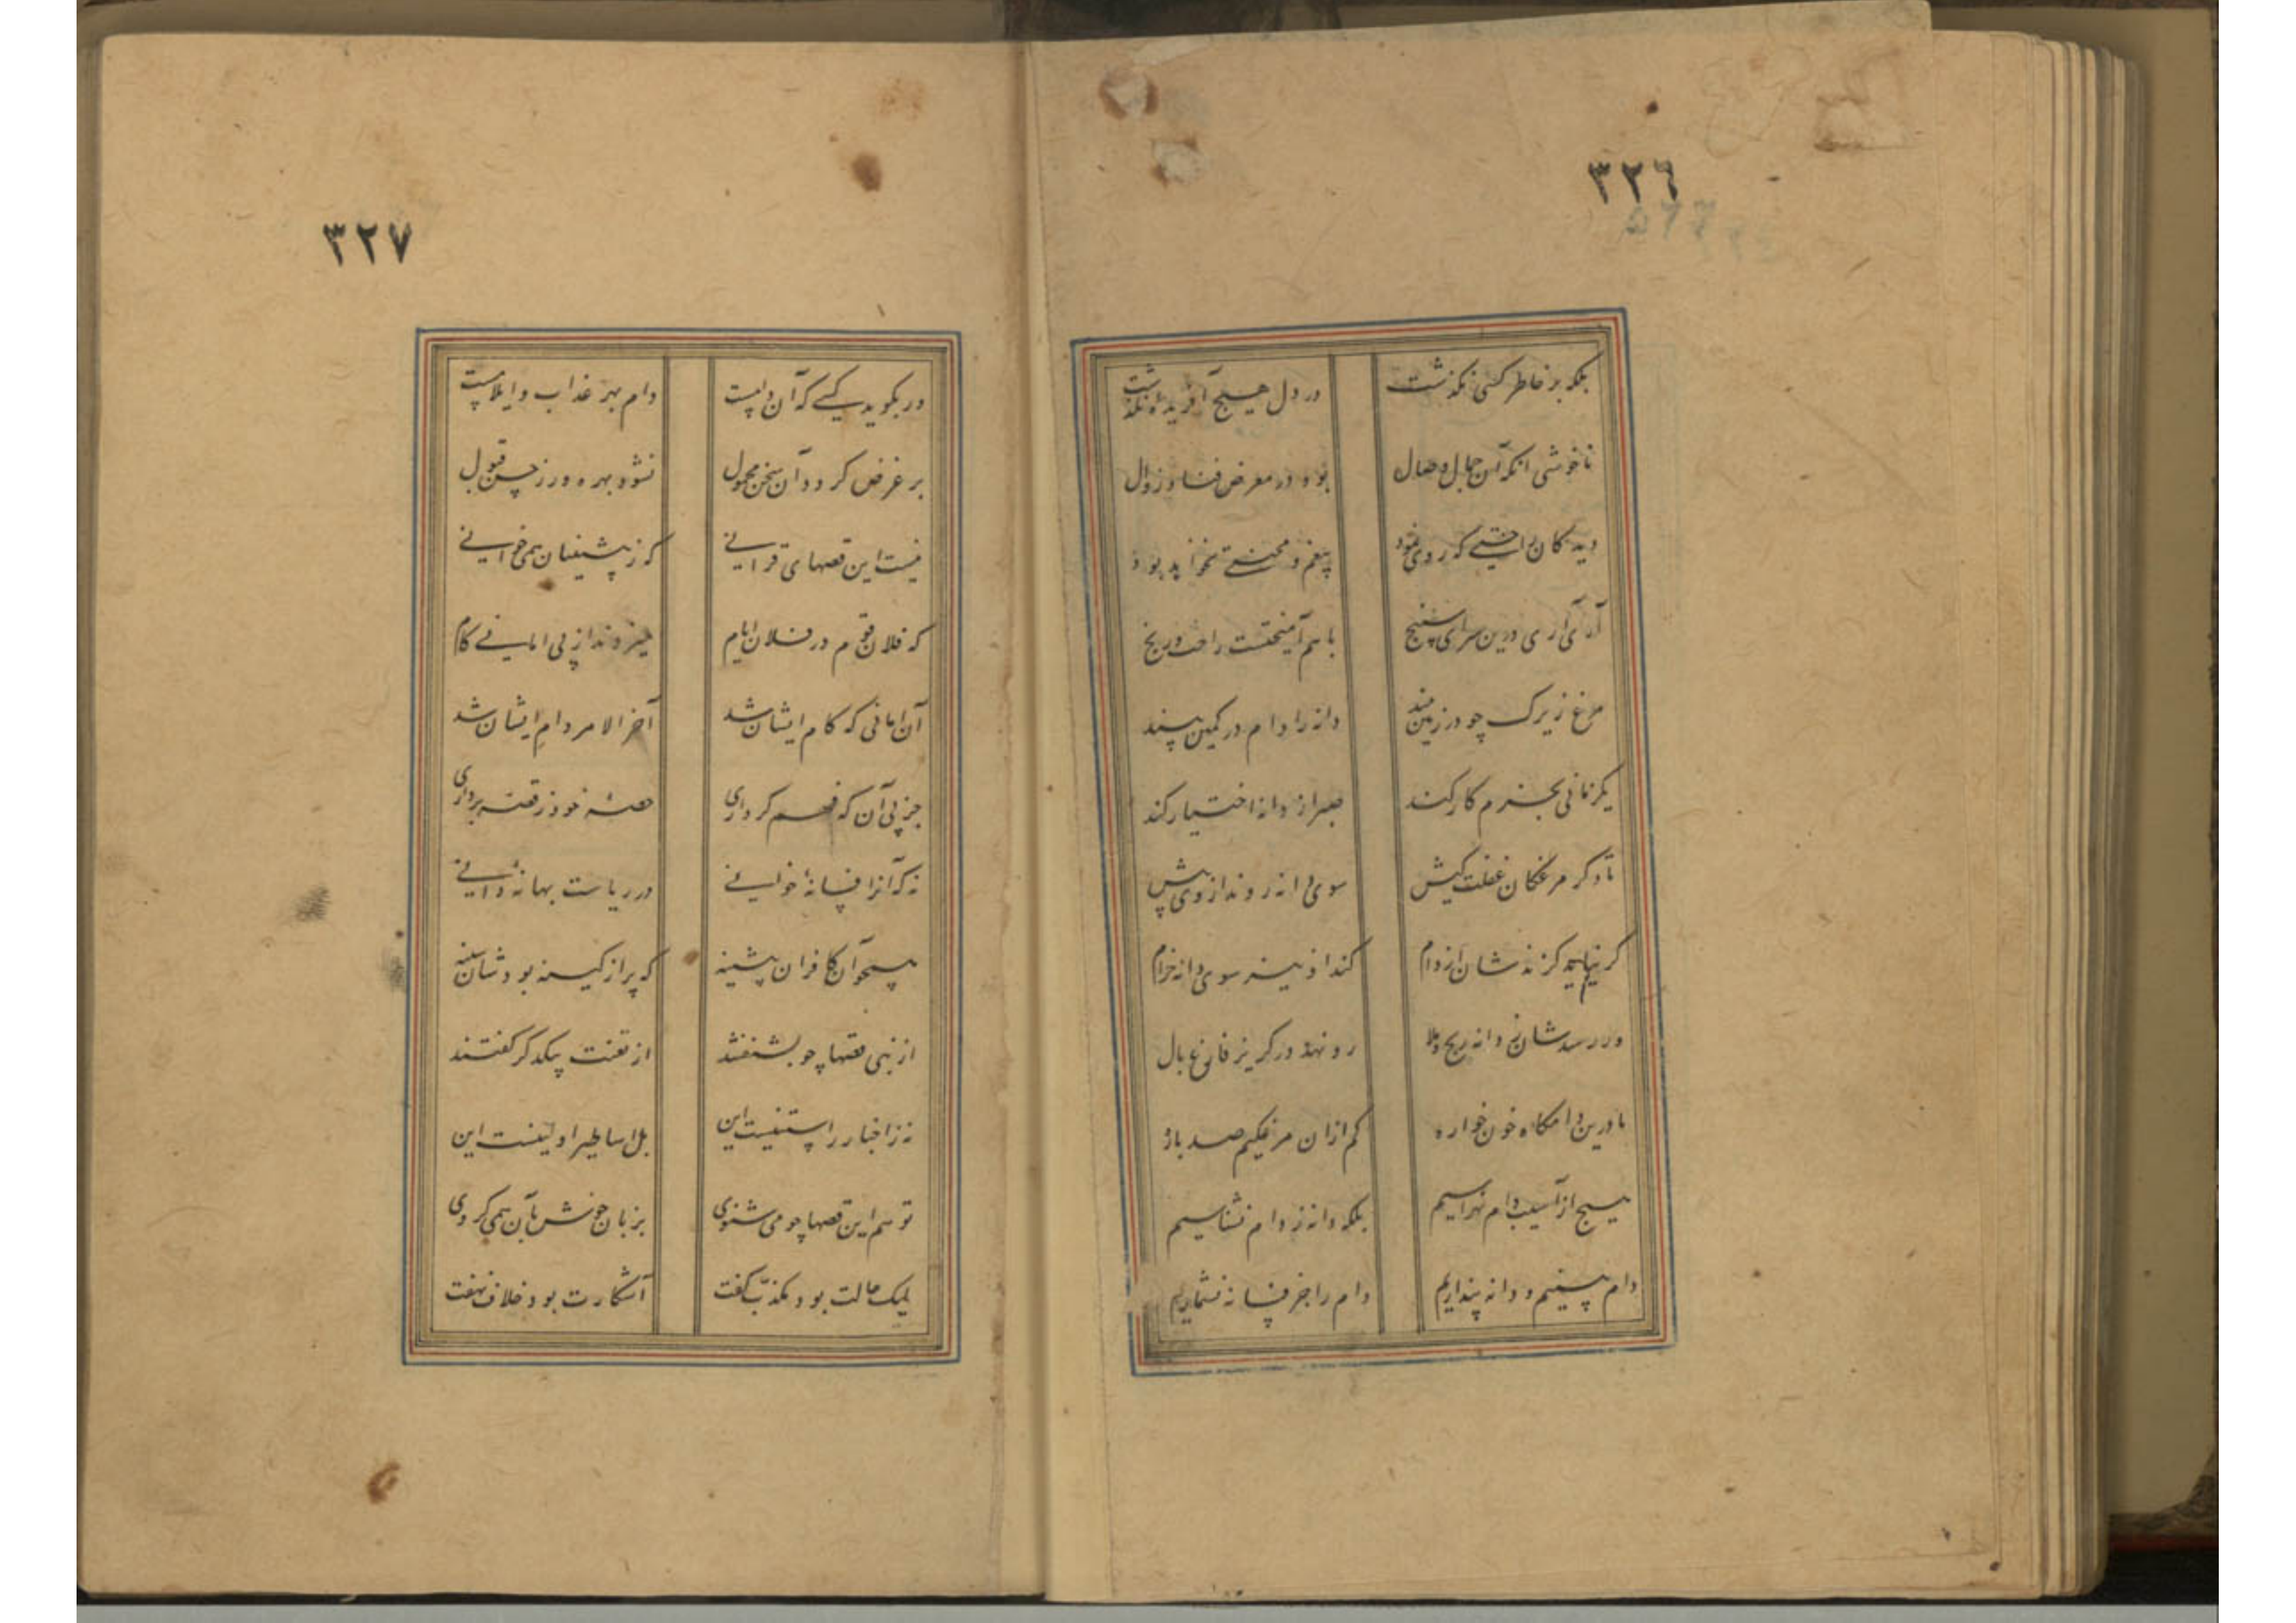 ٣٢٦
بلکه بر خاطر کسی نگذشت در دل هیچ آفریده نگذشت
ناخوشی آنکه آن جمال و جلال بود در معرض فنا و زوال
دیدگان راحتی که روی نمود بیغم و محنتی نخواهد بود
آری آری درین سرای سپنج باهم آمیختست راحت و رنج
مرغ زیرک چو در زمین بیند دانه را دام در کمین بیند
یکزمانی بحزم کار کند صبر از دانه اختیار کند
تا دگر مرغکان غفلت کیش سوی دانه روند از وی پیش
گر نیاید گزندشان از دام کند او نیز سوی دانه خرام
ور رسدشان ز دانه رنج و بلا رو نهد در گریز فارغ بال
ما درین دامگاه خون خواره کم ازان مرغکیم صد باره
هیچ از آسیب دام نهراسیم بلکه دانه ز دام نشناسیم
دام بینیم و دانه پنداریم دام را جز فسانه نشماریم
٣٢٧
ور بگوید کسی که آن دامست دام بهر عذاب و ایلامست
بر غرض گردد آن سخن محمول نشود بهره ور ز حسن قبول
نیست این قصهای قرآنی کز پیشینیان همی خوانی
که فلان قوم در فلان ایام میزدند از پی امانی کام
آن امانی که کام ایشان شد آخر الامر دام ایشان شد
جز پی آن که فهم کرداری حصهٔ خود ز قصه برداری
نه که آنرا فسانهٔ خوانی در ریاست بهانهٔ دانی
همچو آن کافران پیشینه که پر از کینه بودشان سینه
از نبی قصها چو بشنفتند از تعنت بیکدگر گفتند
نه ز اخبار راستینست این بل اساطیر اولینست این
تو هم این قصها چو می شنوی بزبان خوش بآن همی گروی
لیک حالت بود مکذب گفت آشکارت بود خلاف نهفت